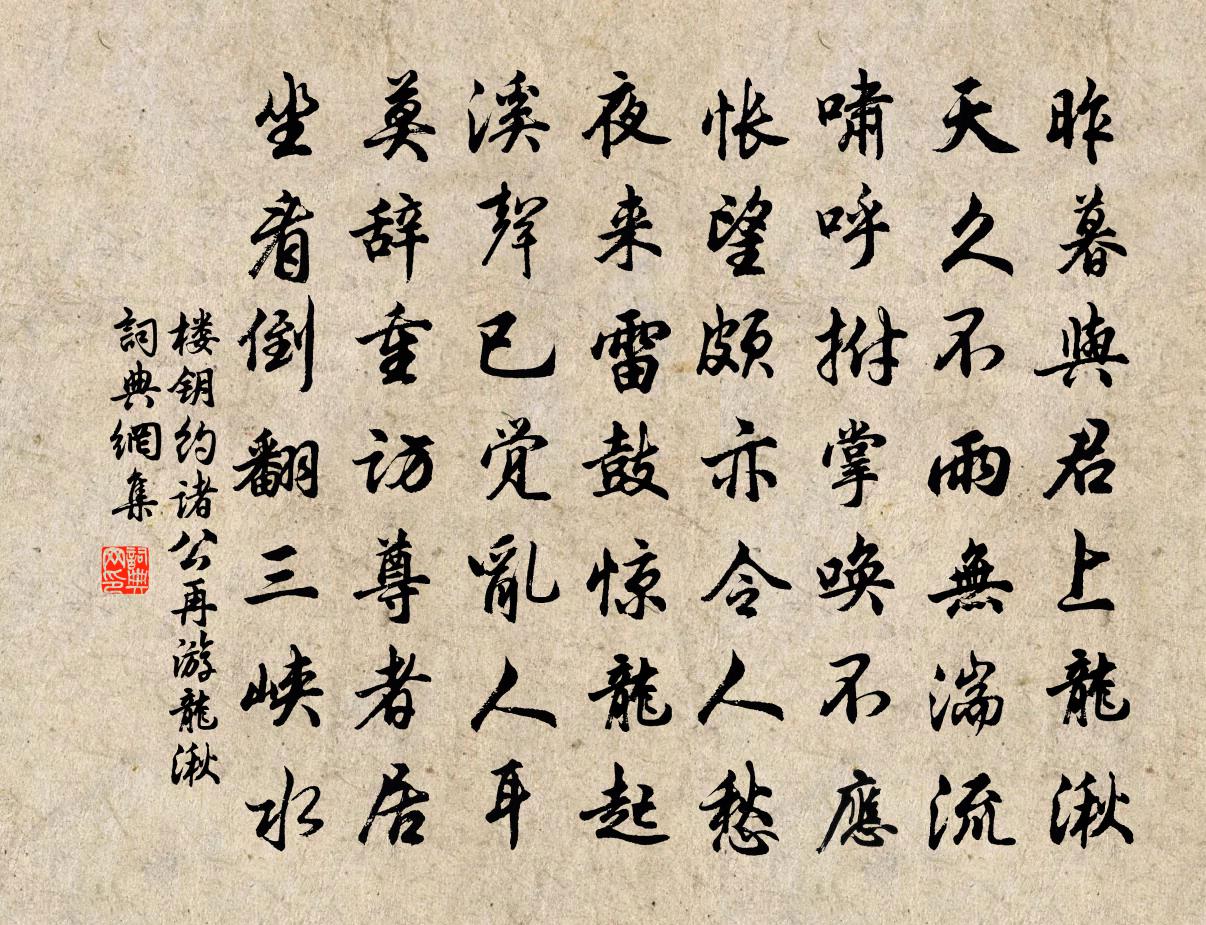 昨暮與君上龍湫
天久不雨無湍流
嘯呼拊掌喚不應
悵望頗亦令人愁
夜来雷鼓惊龍起
溪聲已觉亂人耳
莫辞重访尊者居
坐看倒翻三峡水
楼钥约诸公再游龍湫
詞典網集
詞典网印